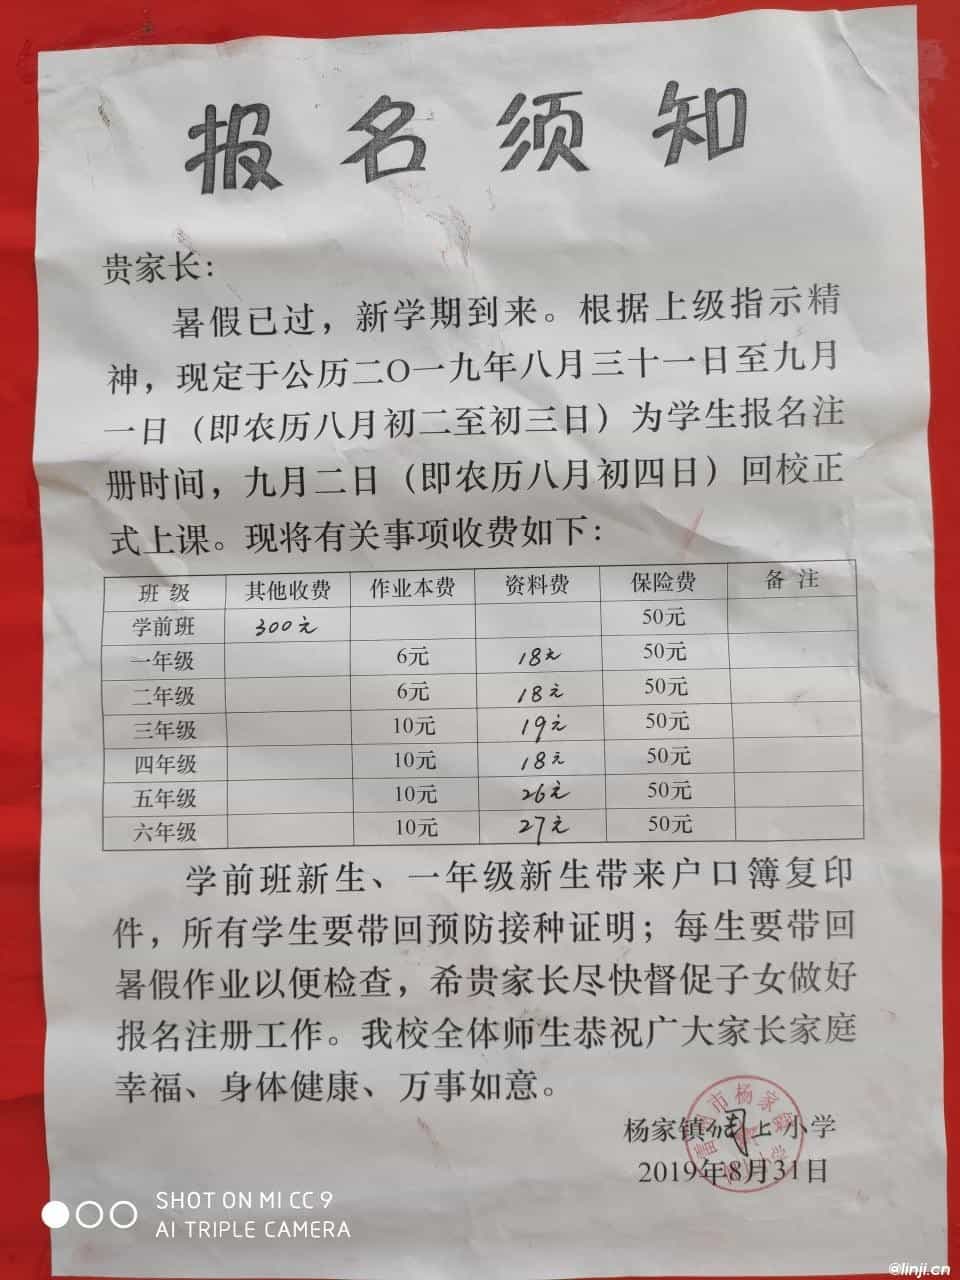 报名须知
贵家长：
暑假已过，新学期到来。根据上级指示精
神，现定于公历二O一九年八月三十一日至九月
一日（即农历八月初二至初三日）为学生报名注
册时间，九月二日（即农历八月初四日）回校正
式上课。现将有关事项收费如下：
班级 其他收费 作业本费 资料费 保险费 备注
学前班 300元 50元
一年级 6元 18元 50元
二年级 6元 18元 50元
三年级 10元 19元 50元
四年级 10元 18元 50元
五年级 10元 26元 50元
六年级 10元 27元 50元
学前班新生、一年级新生带来户口簿复印
件，所有学生要带回预防接种证明；每生要带回
暑假作业以便检查，希贵家长尽快督促子女做好
报名注册工作。我校全体师生恭祝广大家长家庭
幸福、身体健康、万事如意。
市杨家镇
小学
杨家镇 上小学
2019年8月31日
SHOT ON MI CC 9
AI TRIPLE CAMERA
@linji.cn